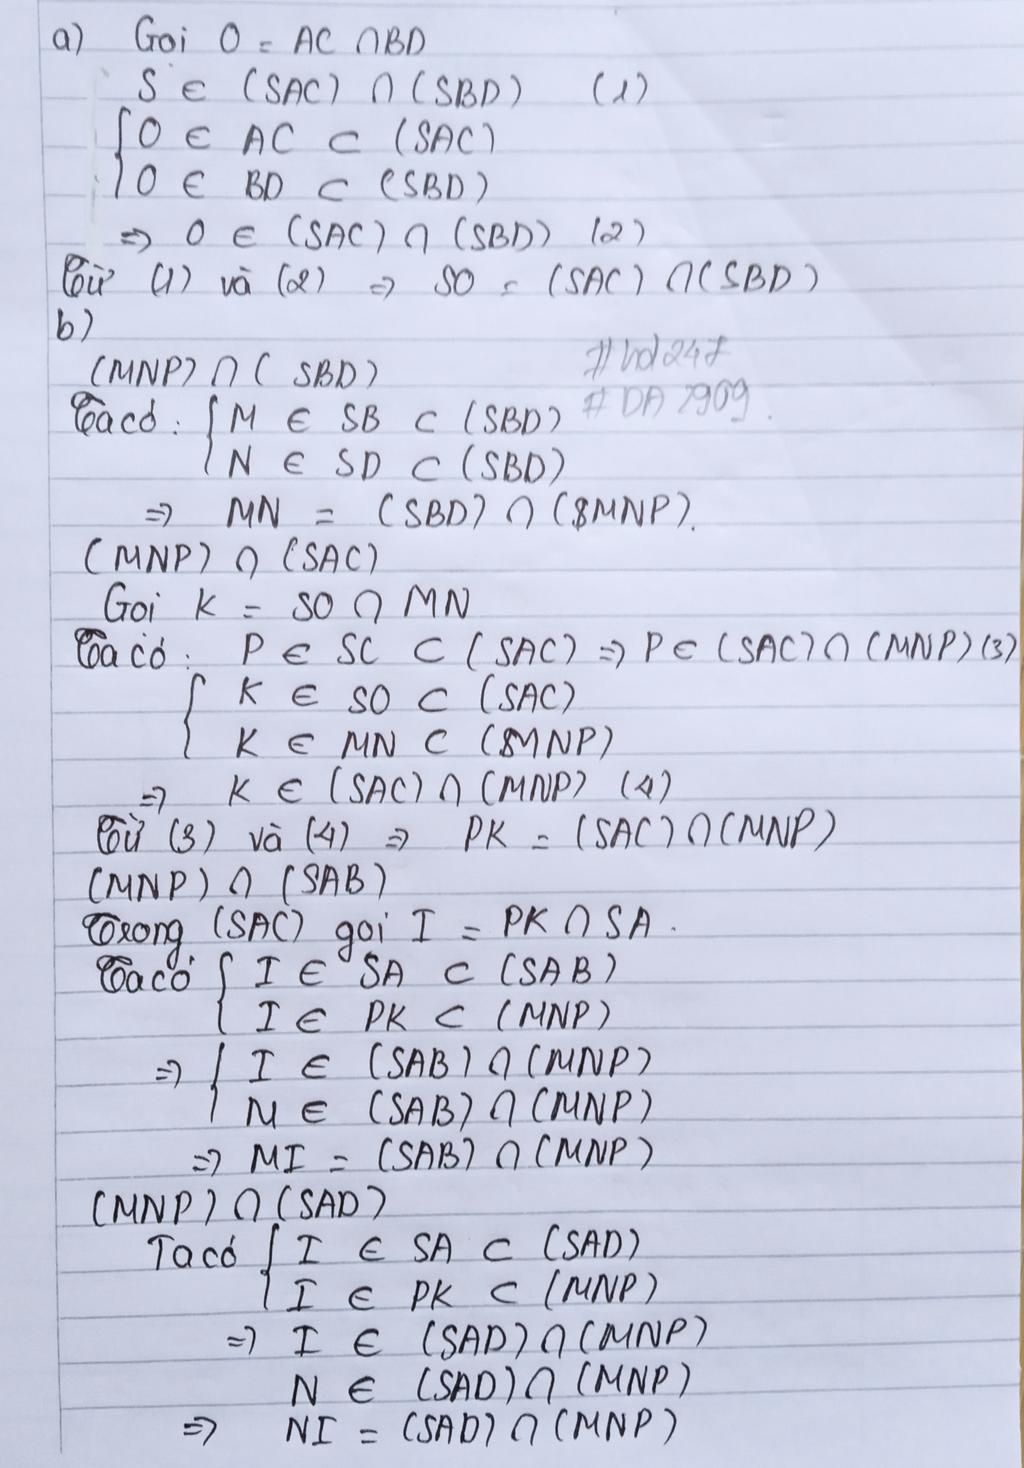 a) Gọi O = AC ∩ BD
S ∈ (SAC) ∩ (SBD) (1)
{ O ∈ AC ⊂ (SAC)
O ∈ BD ⊂ (SBD)
⇒ O ∈ (SAC) ∩ (SBD) (2)
Từ (1) và (2) ⇒ SO = (SAC) ∩ (SBD)
b)
(MNP) ∩ ( SBD)
#hd247
Ta có : { M ∈ SB ⊂ (SBD)
#DA2909.
N ∈ SD ⊂ (SBD)
⇒ MN = (SBD) ∩ (MNP).
(MNP) ∩ (SAC)
Gọi K = SO ∩ MN
Ta có : P ∈ SC ⊂ (SAC) ⇒ P ∈ (SAC) ∩ (MNP) (3)
{ K ∈ SO ⊂ (SAC)
K ∈ MN ⊂ (MNP)
⇒ K ∈ (SAC) ∩ (MNP) (4)
Từ (3) và (4) ⇒ PK = (SAC) ∩ (MNP)
(MNP) ∩ (SAB)
Trong (SAC) gọi I = PK ∩ SA .
Ta có { I ∈ SA ⊂ (SAB)
I ∈ PK ⊂ (MNP)
⇒ { I ∈ (SAB) ∩ (MNP)
M ∈ (SAB) ∩ (MNP)
⇒ MI = (SAB) ∩ (MNP)
(MNP) ∩ (SAD)
Ta có { I ∈ SA ⊂ (SAD)
I ∈ PK ⊂ (MNP)
⇒ I ∈ (SAD) ∩ (MNP)
N ∈ (SAD) ∩ (MNP)
⇒ NI = (SAD) ∩ (MNP)